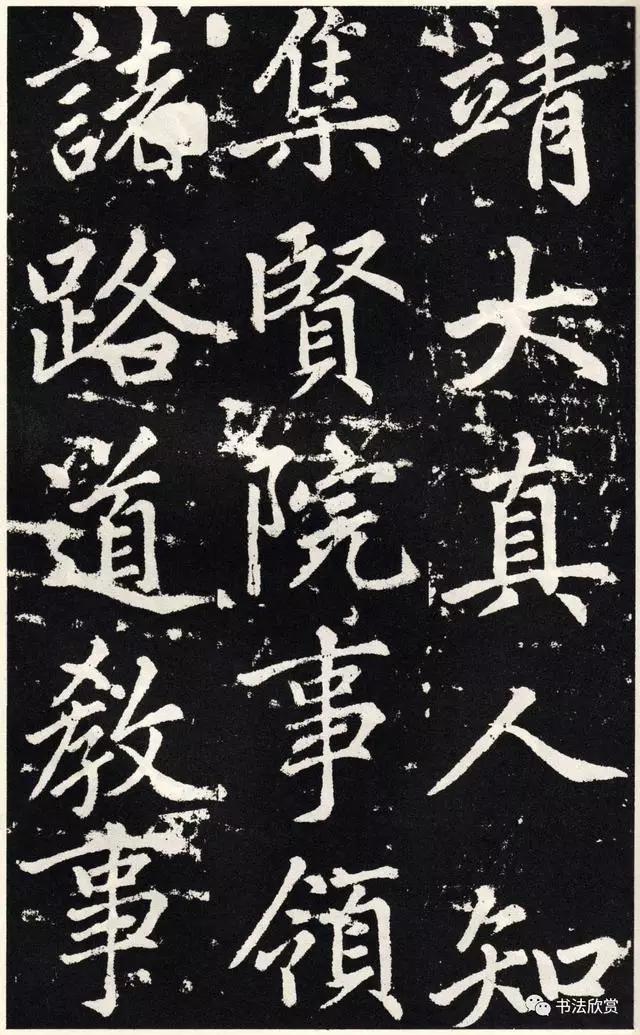 靖大真人知
集賢院事領
諸路道教事
书法欣赏